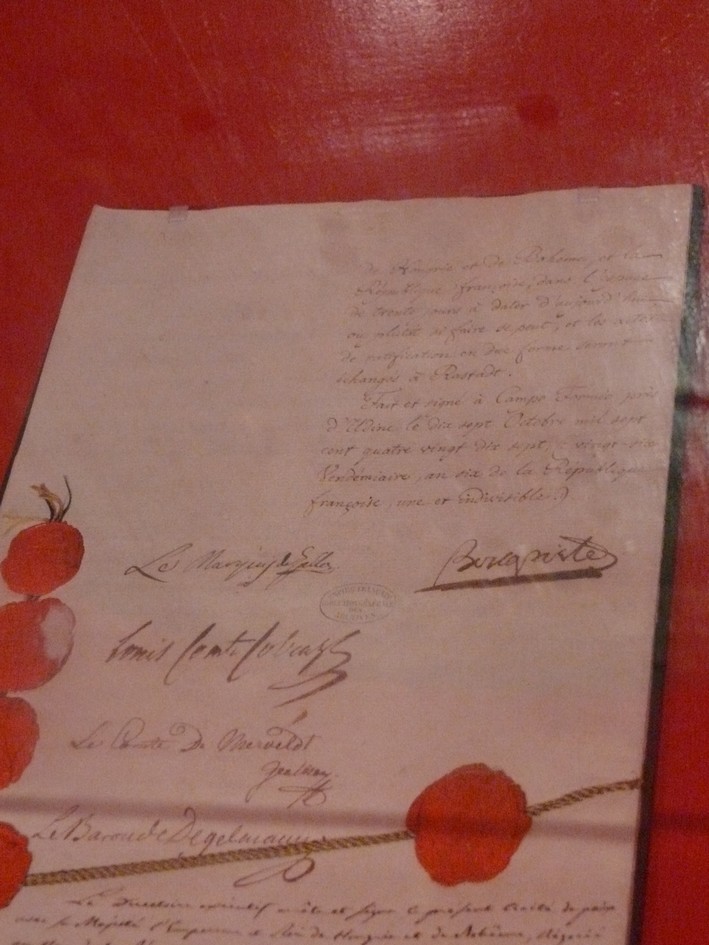 de Hongrie et de Bohême, et la
République françoise, dans l'espace
de trente jours à dater d'aujourd'hui
ou plutôt si faire se peut, et les actes
de ratification en due forme seront
échangés à Rastadt.
Fait et signé à Campo Formio près
d'Udine le dix sept Octobre mil sept
cent quatre vingt dix sept, vingt-six
Vendémiaire, an six de la République
françoise, une et indivisible.)
Le Marquis de Gallo
Bonaparte
Louis Comte Cobenzl
Le Comte De Merveldt
Le Baron de Degelmann
Le Directoire exécutif arrête et signe le présent traité de paix
avec sa Majesté l'Empereur et Roi de Hongrie et de Bohême, Négocié